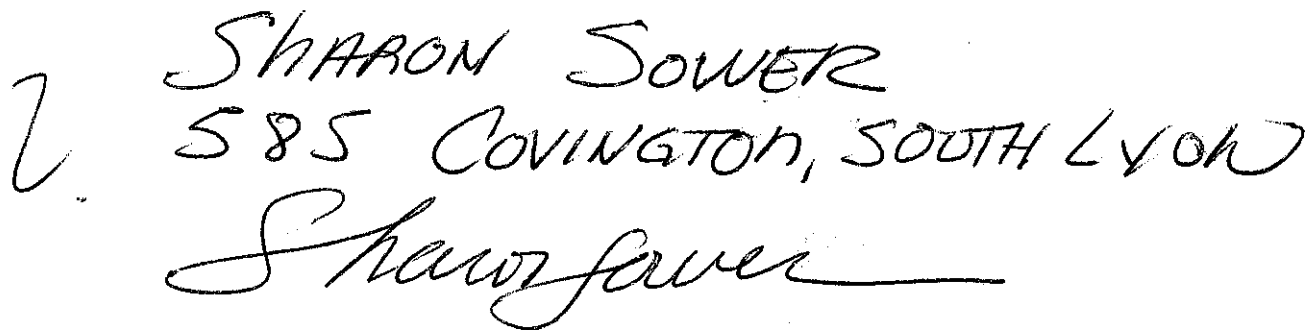 SHARON SOWER
585 COVINGTON, SOUTH LYON
Sharon Sower